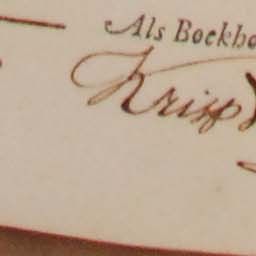 Als Boekho
Krisp